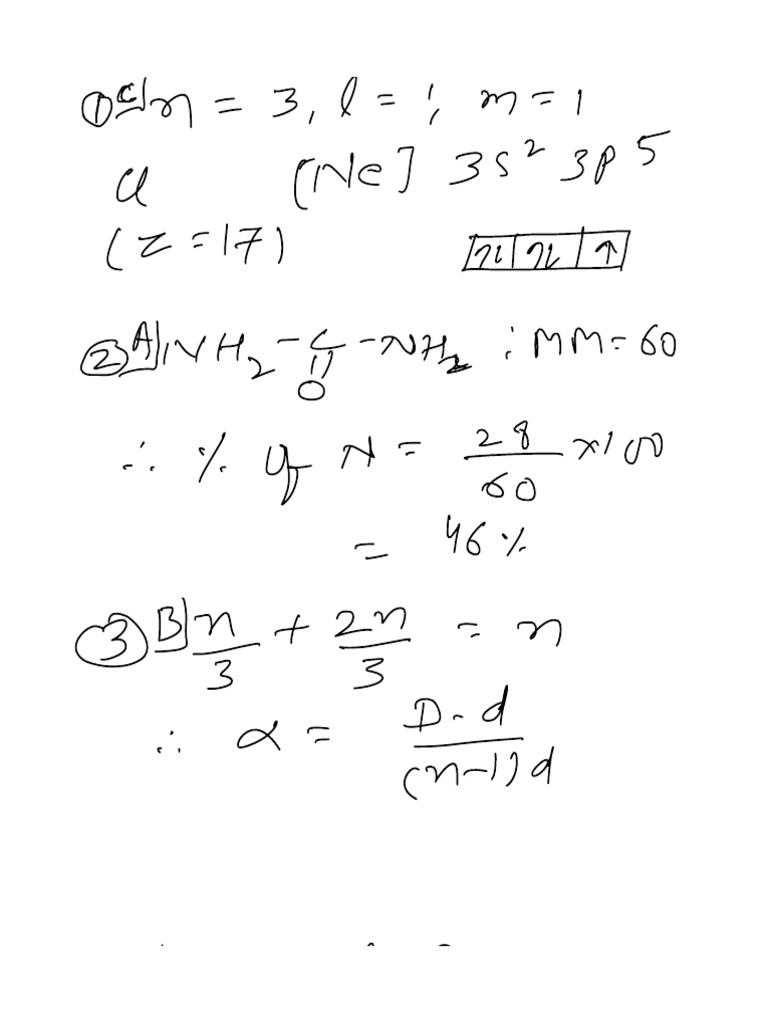 ① C] n = 3, l = 1, m = 1
Cl [Ne] 3s² 3p⁵
(Z = 17) [↑↓|↑↓|↑]
② A] NH₂ - C - NH₂ ; MM = 60
||
O
∴ % of N = 28/60 × 100
= 46 %
③ B] n/3 + 2n/3 = n
∴ α = D - d / (n-1) d